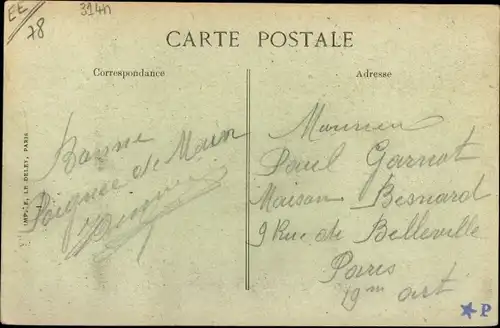 EE
78
314n
CARTE POSTALE
Correspondance
Adresse
Bonne
Poignée de Main
IMP. E. LE DELEY, PARIS
Monsieur
Paul Garnot
Maison Besnard
9 Rue de Belleville
Paris
19me arrt
★P